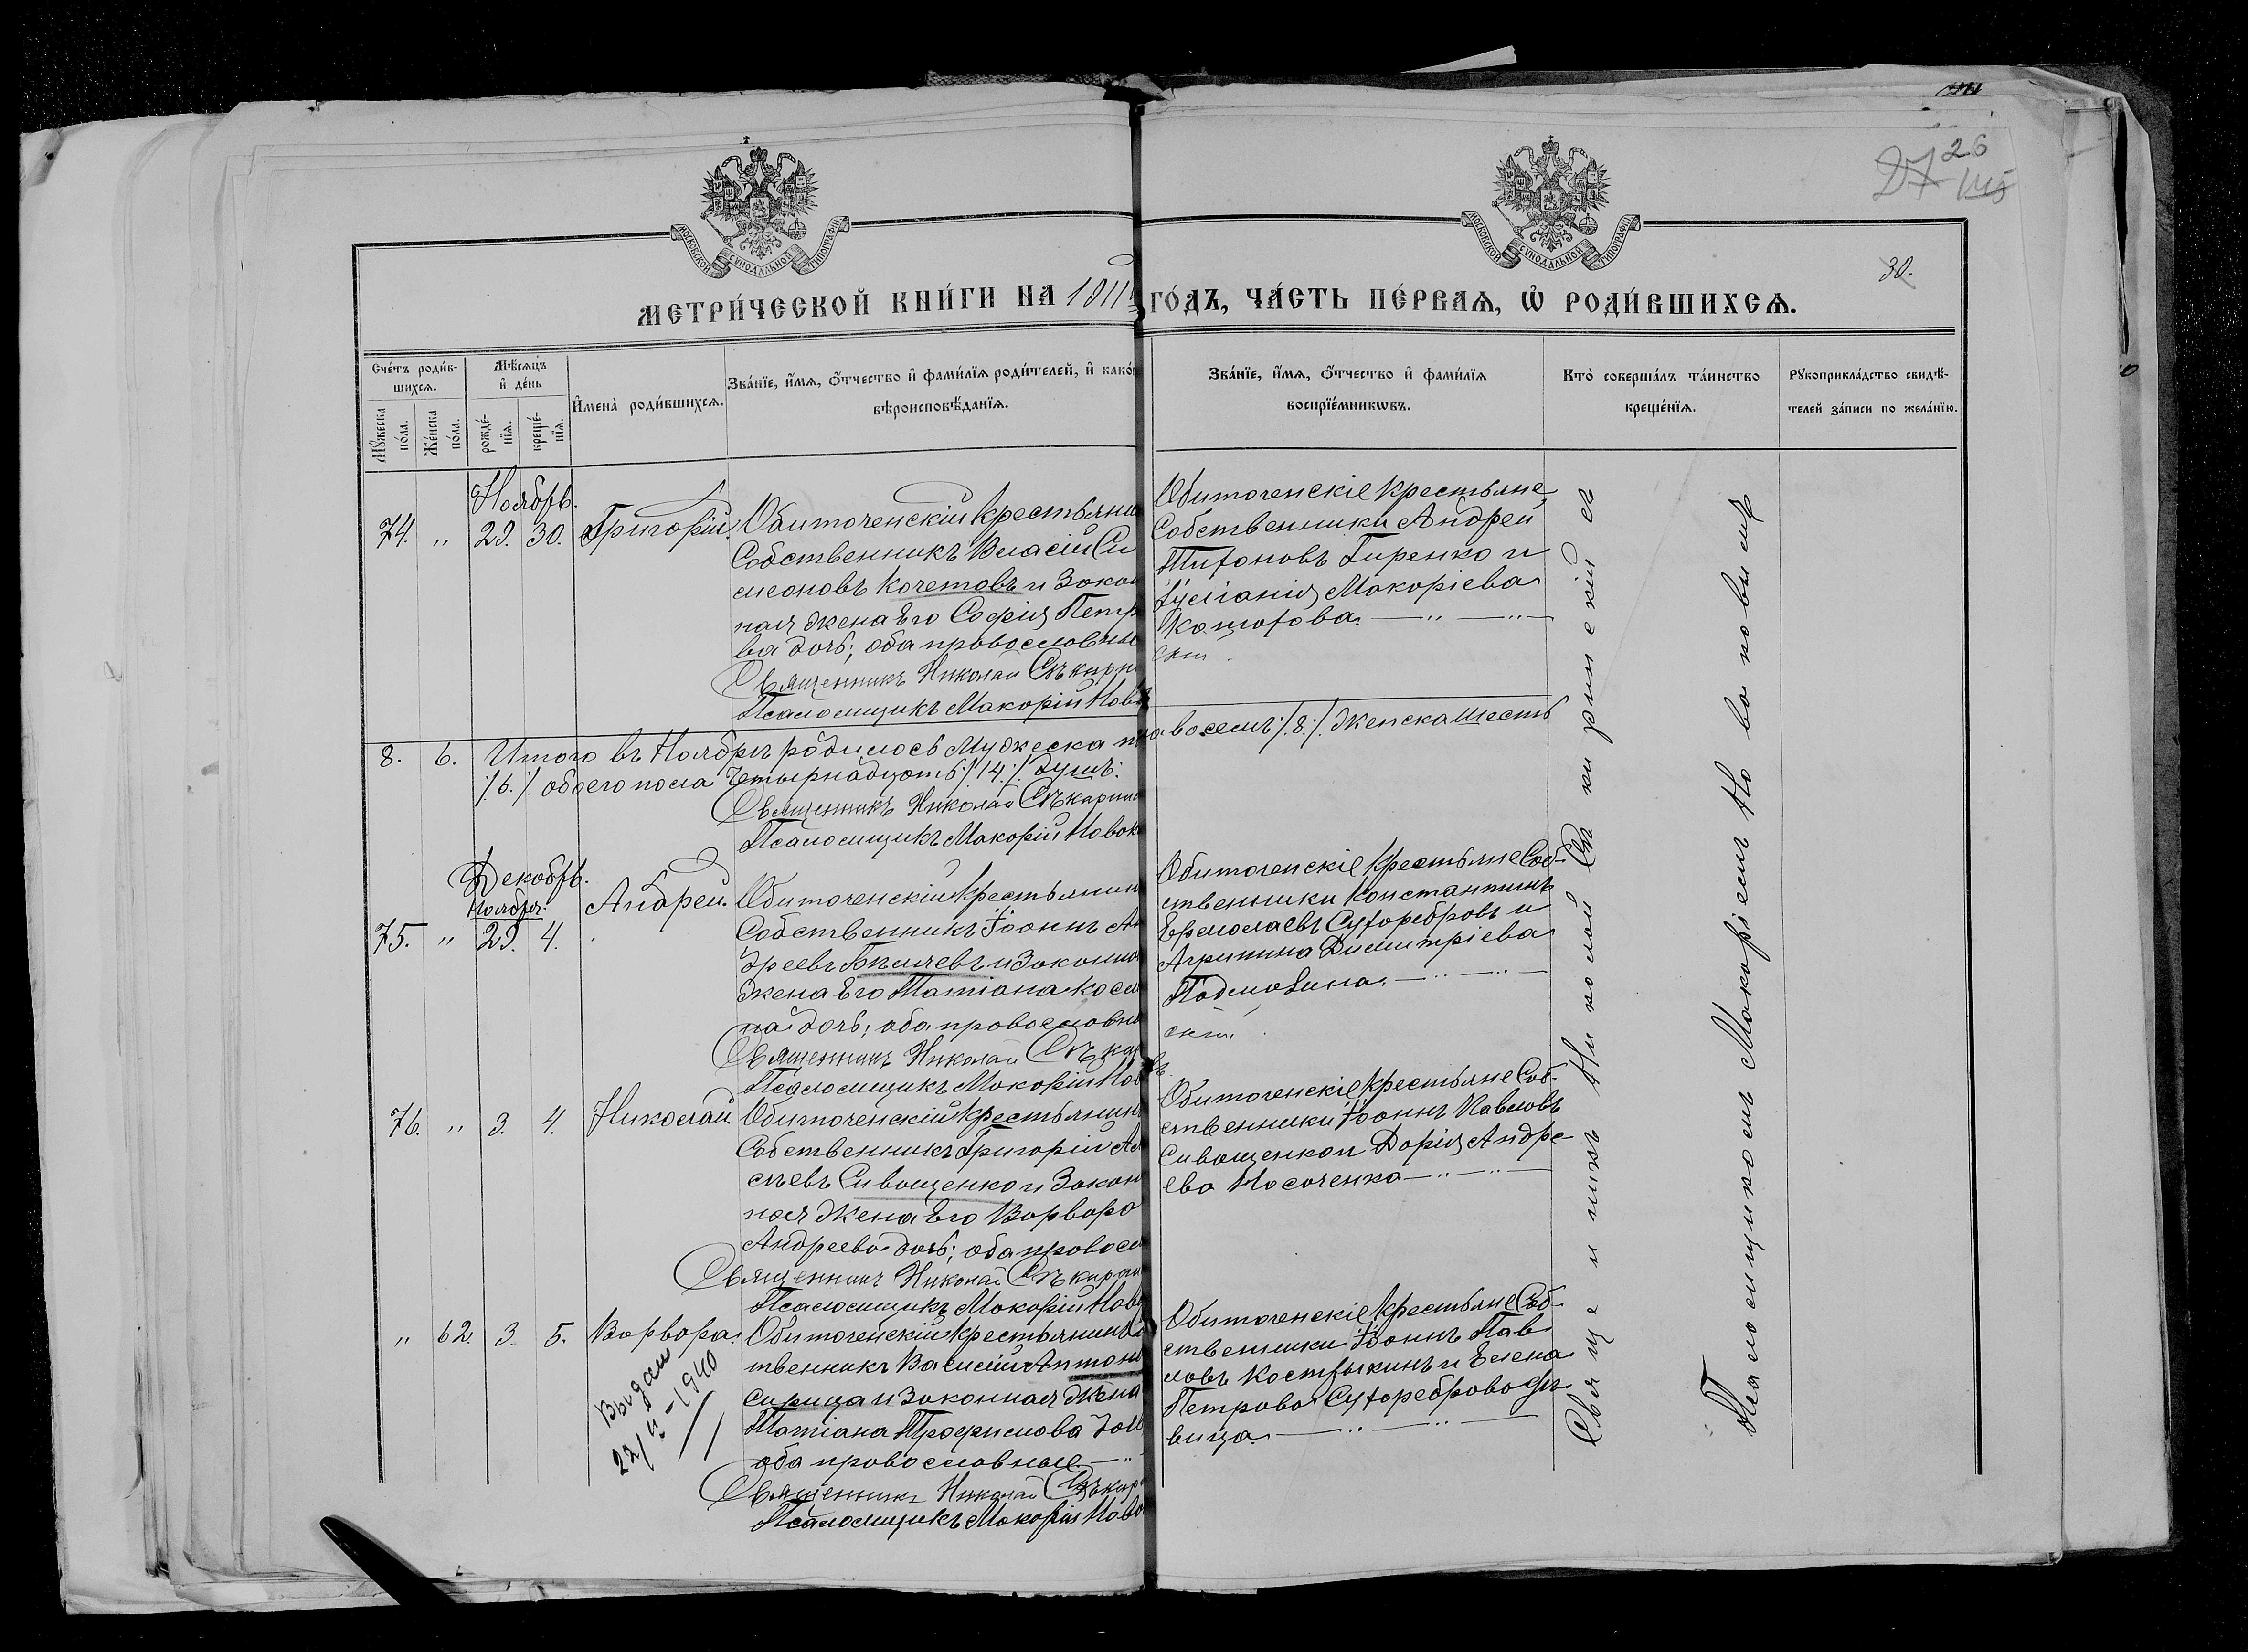 26
27
30.
МОСКОВСКОЙ СѴНОДАЛЬНОЙ ТИПОГРАФІИ
МОСКОВСКОЙ СѴНОДАЛЬНОЙ ТИПОГРАФІИ
МЕТРИ́ЧЕСКОЙ КНИ́ГИ НА 1911
ГО́ДЪ, ЧА́СТЬ ПЕ́РВАѦ, Ѡ҆ РОДИ́ВШИХСѦ.
Сче́тъ роди́в-
шихсѧ.
Мꙋ́жеска по́ла.
Же́нска по́ла.
Мѣ́сѧцъ и҆ де́нь
рожде́-
нїѧ.
креще́-
нїѧ.
И҆мена̀ роди́вшихсѧ.
Зва́нїе, и҆́мѧ, ѻ҆́тчество и҆ фами́лїѧ роди́телей, и҆ како́
вѣроисповѣ́данїѧ.
Зва́нїе, и҆́мѧ, ѻ҆́тчество и҆ фами́лїѧ
воспрїе́мникѡвъ.
Кто̀ соверша́лъ та́инство
креще́нїѧ.
Рꙋкоприкла́дство свидѣ́-
телей за́писи по жела́нїю.
Ноябрь.
74. " 29. 30. Григорій.
Обиточенскій крестьянин
Собственникъ Власій Си
меоновъ Кочетовъ и Закон
ная жена Его Софія Петр
ва дочь; оба православны
Священникъ Николай Скъкирин
Псаломщикъ Макорій Нов
Обиточенскіе крестьяне
Собственники Андрей
Тихоновъ Гиренко и
Макоріева
8. 6. Итого въ Ноябрѣ родилось Мужеска по
ла восемь /8./. Женска шесть
/.6./. обоего пола четырнадцать /.14./. душъ.
Священникъ Николай Скъкирин
Псаломщикъ Макорій Новок
Декабрь.
Ноября.
75. " 29. 4. Андрей.
Обиточенскій крестьянинъ
Собственникъ Іоаннъ Ан
дреевъ и Законная
жена Его Татіана Косм
на дочь; оба православн
Священникъ Николай Скъкир
Псаломщикъ Макорій Нов
Обиточенскіе крестьяне Соб-
ственники Константинъ
Ермолаевъ Сухоребровъ и
Агрипина Димитріева
76. " 3. 4. Николай.
Обиточенскій крестьянинъ
Собственникъ Григорій Ал
сѣевъ Сиващенко и Закон
ная жена Его Варвара
Андреева дочь; оба правосл
Священникъ Николай Скъкирин
Псаломщикъ Макорій Нов
Обиточенскіе крестьяне Соб-
ственники Іоаннъ Павловъ
Сиващенко и Дарія Андре
ева Носаченко
" 62. 3. 5. Варвара.
Выдан
22/II-1940
Обиточенскій крестьянинъ Соб
твенникъ Василій Антон
Сирица и Законная жена
Татіана Трофимова доч
оба православные
Священникъ Николай Скъкир
Псаломщикъ Макорій Ново
Обиточенскіе крестьяне Соб-
ственники Іоаннъ Пав
ловъ Кострыкинъ и Елена
Петрова Сухореброва дѣ
вица.
Священникъ Николай Скъкиринскій съ
Псаломщикомъ Макоріемъ Новаковымъ